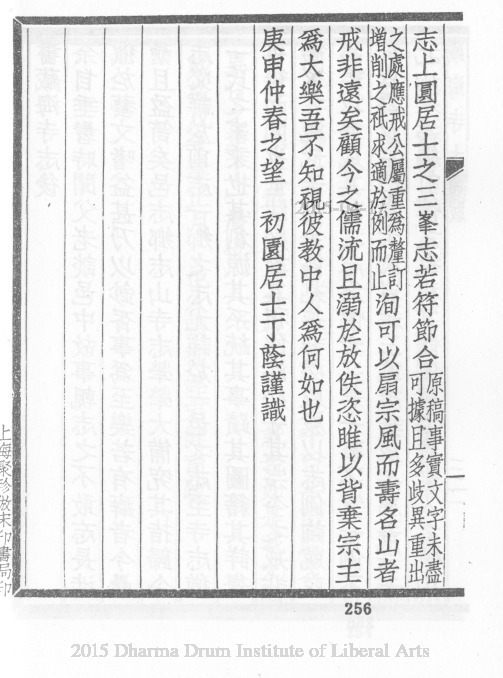 志上圓居士之三峯志若符節合原稿事實文字未盡可據且多歧異重出
之處應戒公屬重爲釐訂增削之祇求適於例而止洵可以扇宗風而壽名山者
戒非遠矣顧今之儒流且溺於放佚恣睢以背棄宗主
爲大樂吾不知視彼教中人爲何如也
庚申仲春之望　初園居士丁蔭謹識
上海聚珍倣宋印書局印
256
2015 Dharma Drum Institute of Liberal Arts